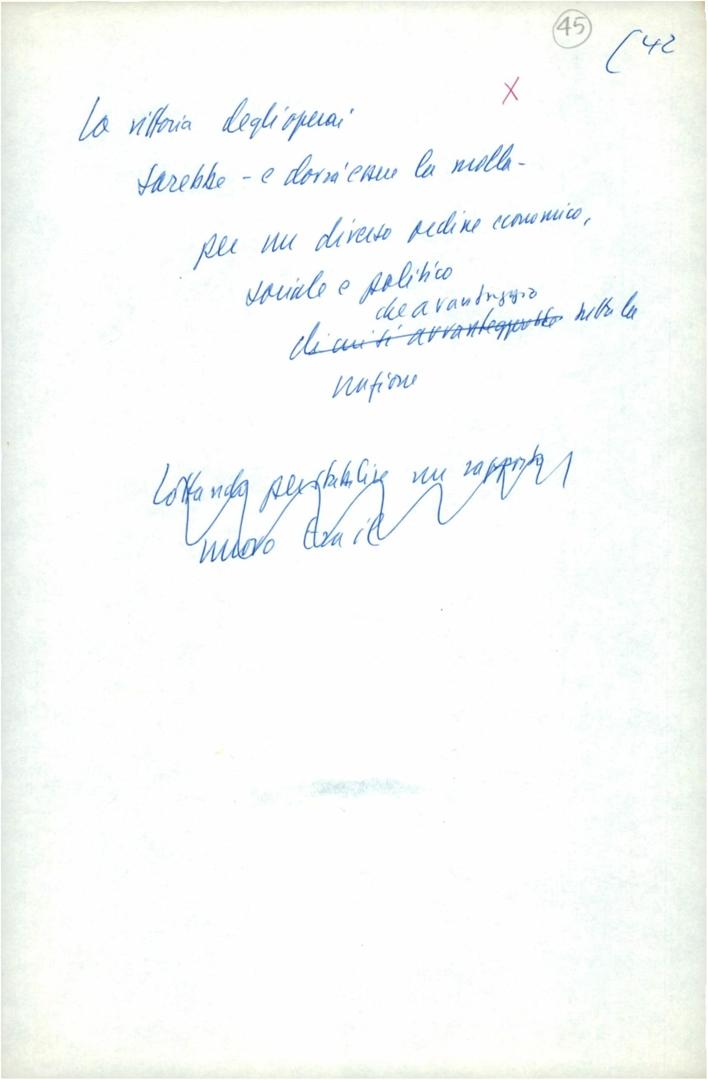 45
(42
X
La vittoria degli operai
sarebbe - e dovrà essere la molla -
per un diverso ordine economico,
sociale e politico
che avvantaggia
di cui si avvantaggerebbe tutta la
nazione
Lottando per stabilire un rapporto
nuovo tra il